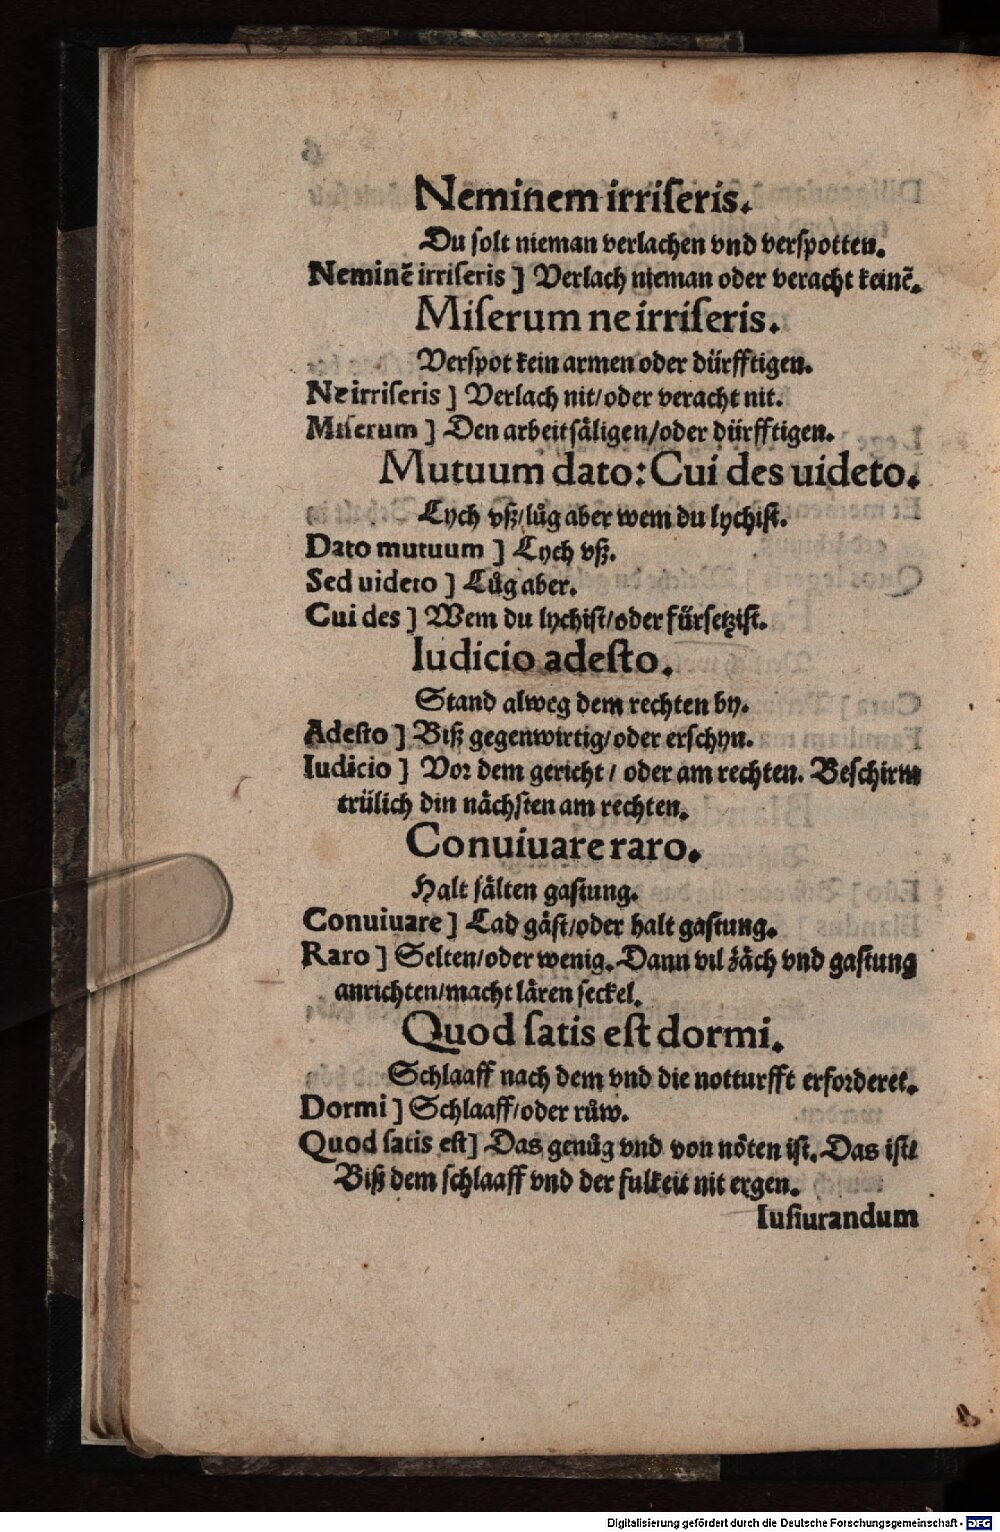 Neminem irriſeris.
Du ſolt nieman verlachen vnd verſpotten.
Neminē irriſeris ] Verlach nieman oder veracht keinē.
Miſerum ne irriſeris.
Verſpot kein armen oder dürfftigen.
Ne irriſeris ] Verlach nit/oder veracht nit.
Miſerum ] Den arbeitſäligen/oder dürfftigen.
Mutuum dato: Cui des uideto.
Lych vß/lůg aber wem du lychiſt.
Dato mutuum ] Lych vß.
Sed uideto ] Lůg aber.
Cui des ] Wem du lychiſt/oder fürſetziſt.
Iudicio adeſto.
Stand alweg dem rechten by.
Adeſto ] Biß gegenwirtig/oder erſchyn.
Iudicio ] Vor dem gericht / oder am rechten. Beſchirm
trülich din nächſten am rechten.
Conuiuare raro.
Halt ſälten gaſtung.
Conuiuare ] Lad gäſt/oder halt gaſtung.
Raro ] Selten/oder wenig. Dann vil zäch vnd gaſtung
anrichten/macht lären ſeckel.
Quod ſatis eſt dormi.
Schlaaff nach dem vnd die notturfft erforderet.
Dormi ] Schlaaff/oder růw.
Quod ſatis eſt] Das genůg vnd von nöten iſt. Das iſt/
Biß dem ſchlaaff vnd der fulkeit nit ergen.
Iuſiurandum
Digitalisierung gefördert durch die Deutsche Forschungsgemeinschaft - DFG